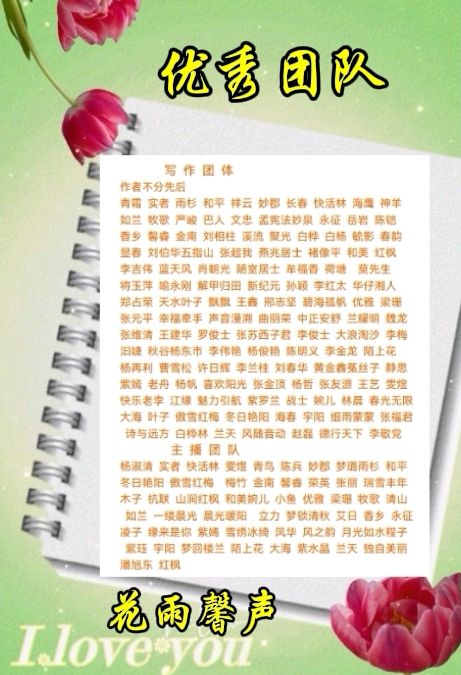 优秀团队
写作团体
作者不分先后
青霜 实者 雨杉 和平 祥云 妙郡 长春 快活林 海鹰 神羊
如兰 牧歌 严峻 巴人 文忠 孟宪法妙泉 永征 岳岩 陈铠
香乡 馨睿 金南 刘相柱 溪流 聚光 白桦 白杨 毓影 春韵
显春 刘伯华五指山 张超我 燕兆居士 褚像平 和美 红枫
李吉伟 蓝天风 肖朝光 陋室居士 牟福香 荷塘 莫先生
将玉萍 喻永刚 解甲归田 新纪元 孙颖 李红太 华仔湘人
郑占荣 天水叶子 飘飘 王鑫 邢志坚 碧海孤帆 优雅 梁珊
张元平 幸福牵手 声音漫溯 曲丽荣 中正安舒 兰耀明 魏龙
张维清 王建华 罗俊士 张苏西子君 李俊士 大浪淘沙 李梅
汩婕 秋谷杨东市 李伟艳 杨俊艳 陈明义 李金龙 陌上花
杨再利 曹雪松 许日辉 李兰桂 刘春华 黄金鑫菟丝子 静思
紫嫣 老舟 杨帆 喜欢阳光 张金顶 杨哲 张友源 王艺 雯煜
快乐老李 江缘 魅力引航 紫罗兰 战士 婉儿 林晨 春光无限
大海 叶子 傲雪红梅 冬日艳阳 海春 宇阳 细雨蒙蒙 张福君
诗与远方 白桦林 兰天 风随音动 赵磊 德行天下 李敬党
主播团队
杨淑清 实者 快活林 雯煜 青鸟 陈兵 妙郡 梦璐雨杉 和平
冬日艳阳 傲雪红梅 梅竹 金南 馨睿 荣英 张丽 瑞雪丰年
木子 抗联 山涧红枫 和美婉儿 小鱼 优雅 梁珊 牧歌 清山
如兰 一缕晨光 晨光暖阳 立力 梦锁清秋 艾日 香乡 永征
凌子 缘来是你 紫嫣 雪绣冰绮 风华 风之韵 月光如水程子
紫珏 宇阳 梦回楼兰 陌上花 大海 紫水晶 兰天 独自美丽
潘旭东 红枫
花雨馨声
I love you